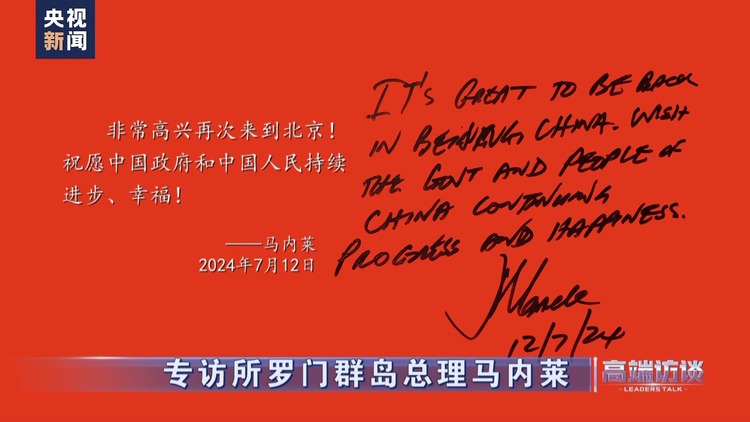 央视
新闻
非常高兴再次来到北京！
祝愿中国政府和中国人民持续
进步、幸福！
——马内莱
2024年7月12日
IT'S GREAT TO BE BACK
IN BEIJING, CHINA. WISH
THE GOVT AND PEOPLE OF
CHINA CONTINUING
PROGRESS AND HAPPINESS.
JManele
12/7/24
专访所罗门群岛总理马内莱
高端访谈
LEADERS TALK